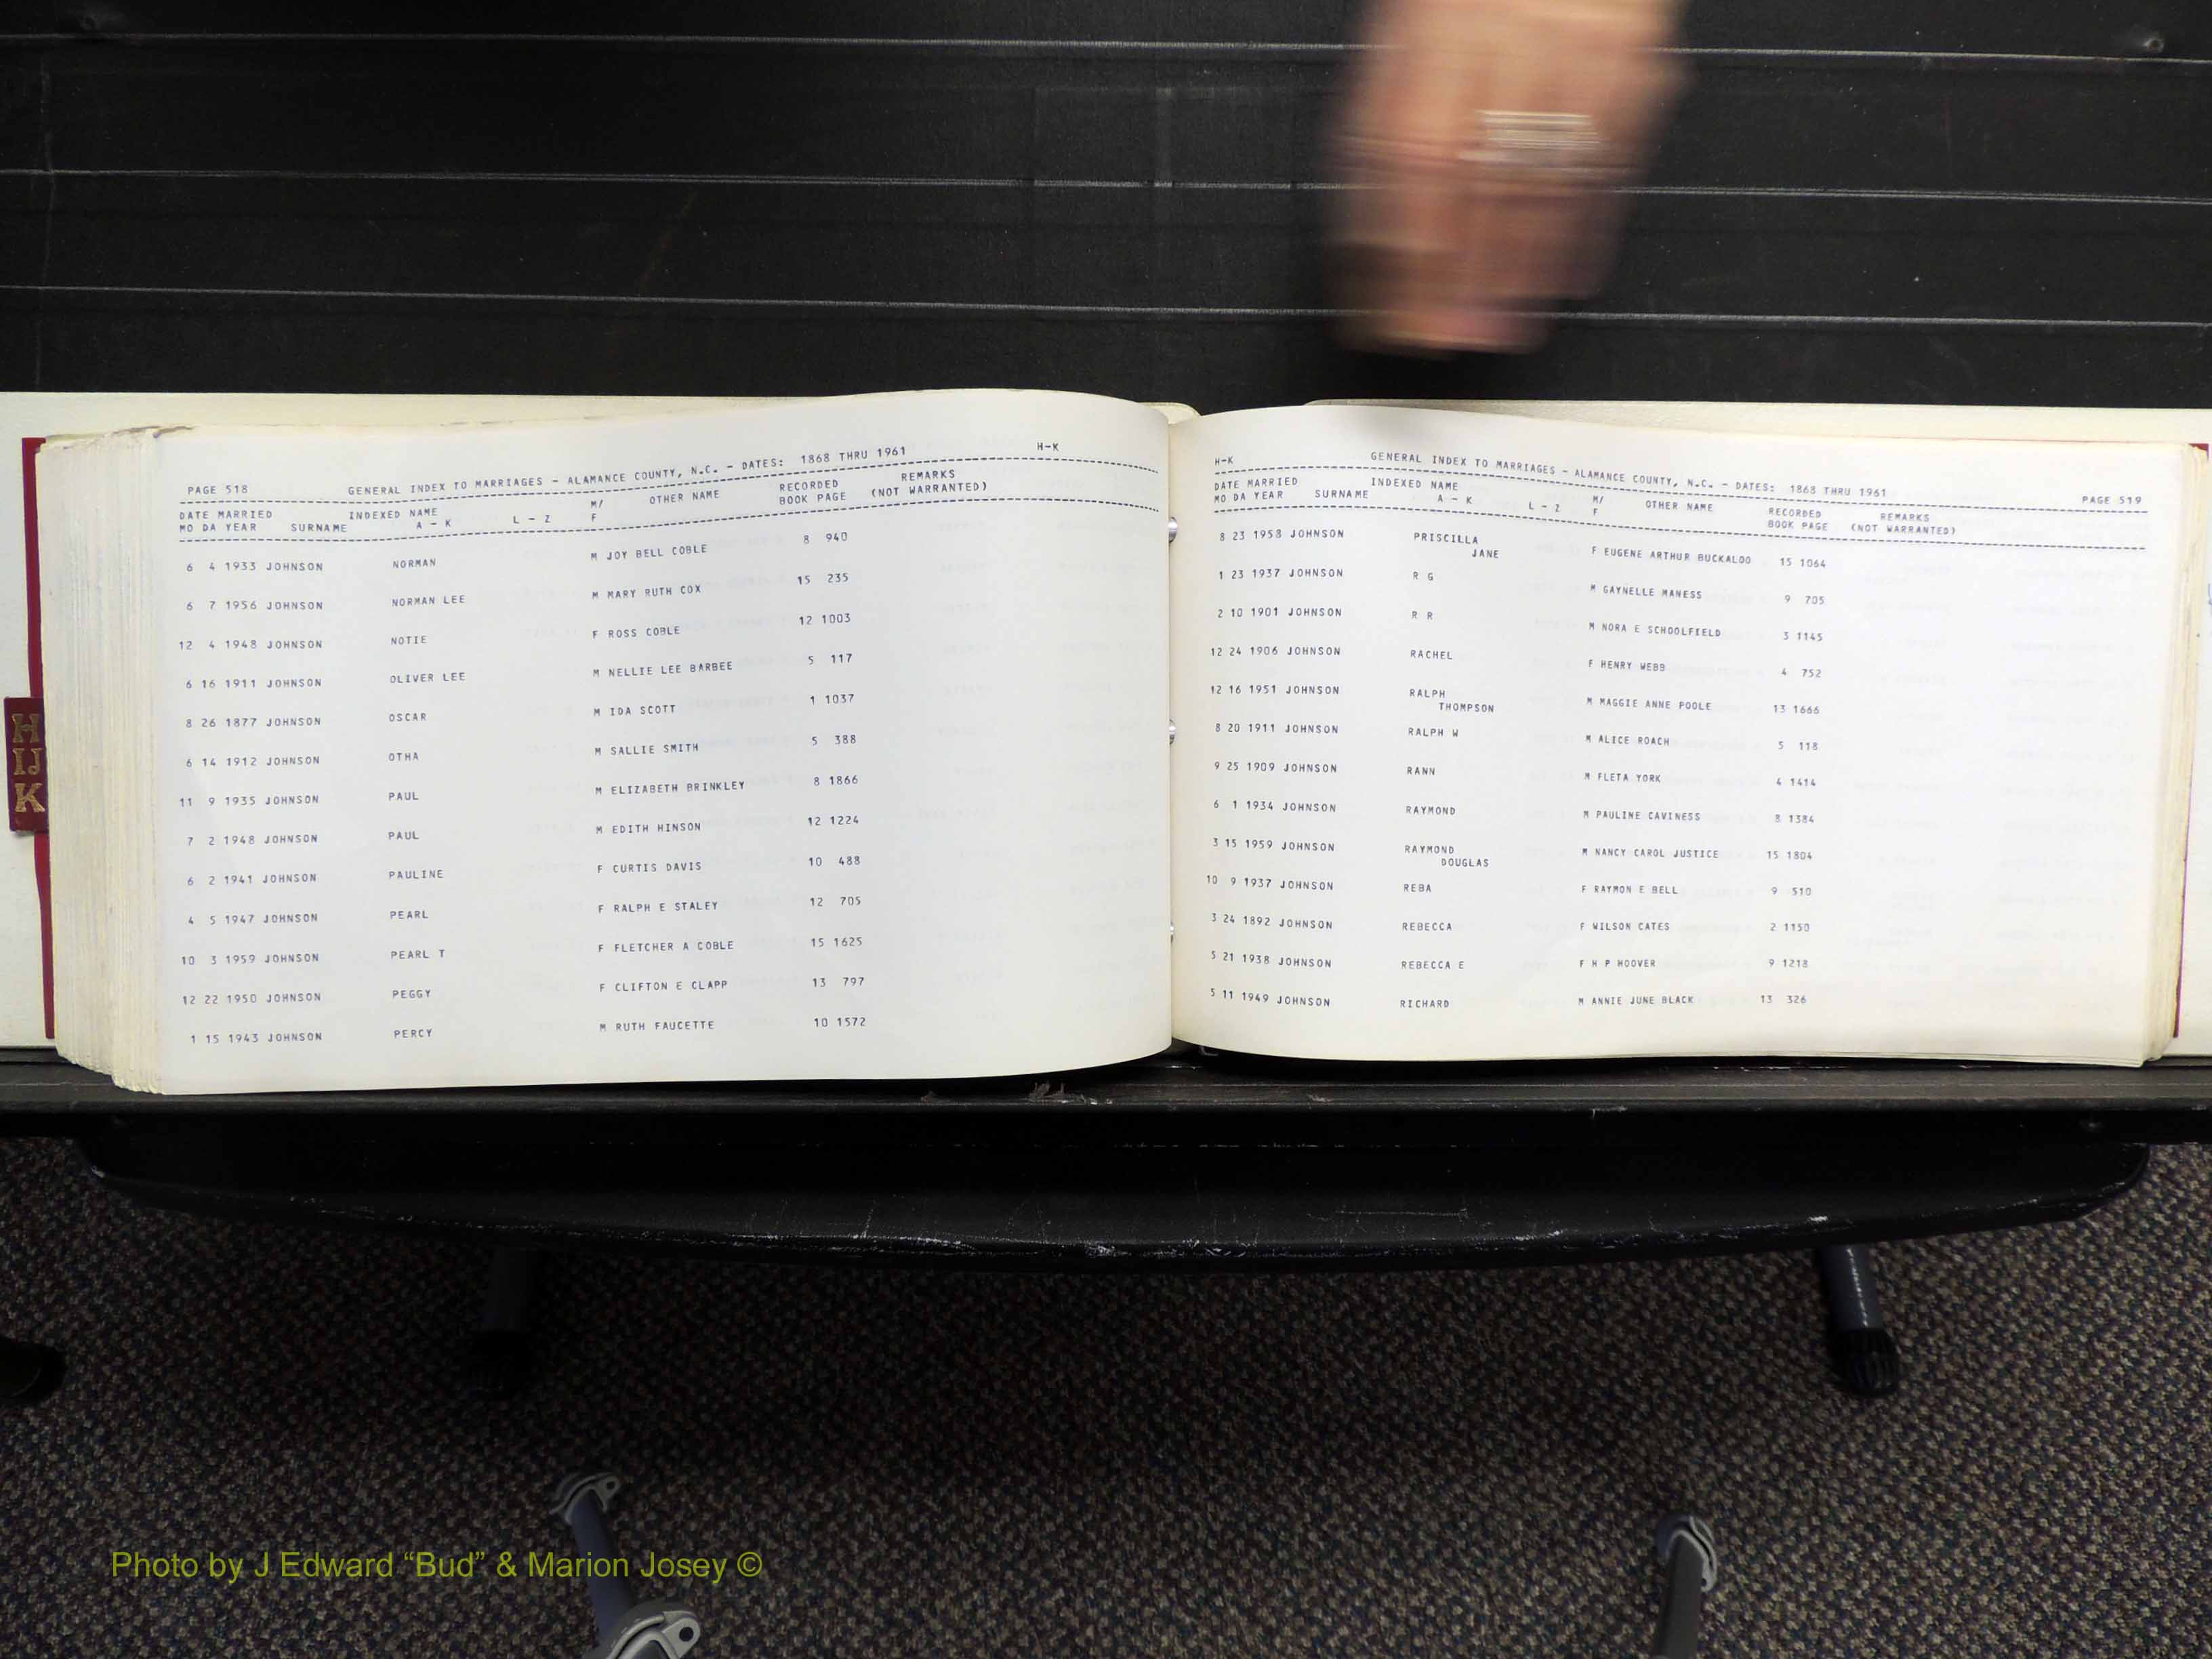 PAGE 518 GENERAL INDEX TO MARRIAGES - ALAMANCE COUNTY, N.C. - DATES: 1868 THRU 1961 H-K
DATE MARRIED INDEXED NAME M/ OTHER NAME RECORDED REMARKS
MO DA YEAR SURNAME A - K L - Z F BOOK PAGE (NOT WARRANTED)
6 4 1933 JOHNSON NORMAN M JOY BELL COBLE 8 940
6 7 1956 JOHNSON NORMAN LEE M MARY RUTH COX 15 235
12 4 1948 JOHNSON NOTIE F ROSS COBLE 12 1003
6 16 1911 JOHNSON OLIVER LEE M NELLIE LEE BARBEE 5 117
8 26 1877 JOHNSON OSCAR M IDA SCOTT 1 1037
6 14 1912 JOHNSON OTHA M SALLIE SMITH 5 388
11 9 1935 JOHNSON PAUL M ELIZABETH BRINKLEY 8 1866
7 2 1948 JOHNSON PAUL M EDITH HINSON 12 1224
6 2 1941 JOHNSON PAULINE F CURTIS DAVIS 10 488
4 5 1947 JOHNSON PEARL F RALPH E STALEY 12 705
10 3 1959 JOHNSON PEARL T F FLETCHER A COBLE 15 1625
12 22 1950 JOHNSON PEGGY F CLIFTON E CLAPP 13 797
1 15 1943 JOHNSON PERCY M RUTH FAUCETTE 10 1572
H-K GENERAL INDEX TO MARRIAGES - ALAMANCE COUNTY, N.C. - DATES: 1868 THRU 1961 PAGE 519
DATE MARRIED INDEXED NAME M/ OTHER NAME RECORDED REMARKS
MO DA YEAR SURNAME A - K L - Z F BOOK PAGE (NOT WARRANTED)
8 23 1958 JOHNSON PRISCILLA F EUGENE ARTHUR BUCKALOO 15 1064
JANE
1 23 1937 JOHNSON R G M GAYNELLE MANESS 9 705
2 10 1901 JOHNSON R R M NORA E SCHOOLFIELD 3 1145
12 24 1906 JOHNSON RACHEL F HENRY WEBB 4 752
12 16 1951 JOHNSON RALPH M MAGGIE ANNE POOLE 13 1666
THOMPSON
8 20 1911 JOHNSON RALPH W M ALICE ROACH 5 118
9 25 1909 JOHNSON RANN M FLETA YORK 4 1414
6 1 1934 JOHNSON RAYMOND M PAULINE CAVINESS 8 1384
3 15 1959 JOHNSON RAYMOND M NANCY CAROL JUSTICE 15 1804
DOUGLAS
10 9 1937 JOHNSON REBA F RAYMON E BELL 9 510
3 24 1892 JOHNSON REBECCA F WILSON CATES 2 1150
5 21 1938 JOHNSON REBECCA E F H P HOOVER 9 1218
5 11 1949 JOHNSON RICHARD M ANNIE JUNE BLACK 13 326
H
IJ
K
Photo by J Edward “Bud” & Marion Josey ©